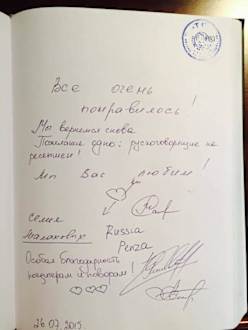 Все очень
понравилось!
Мы вернемся снова
Пожелание одно: рускоговорящие на
ресепшен!
Мы Вас любим!
семья
Малаховых
Russia
Penza
Особая благодарность
и поварам!
26.07.2015